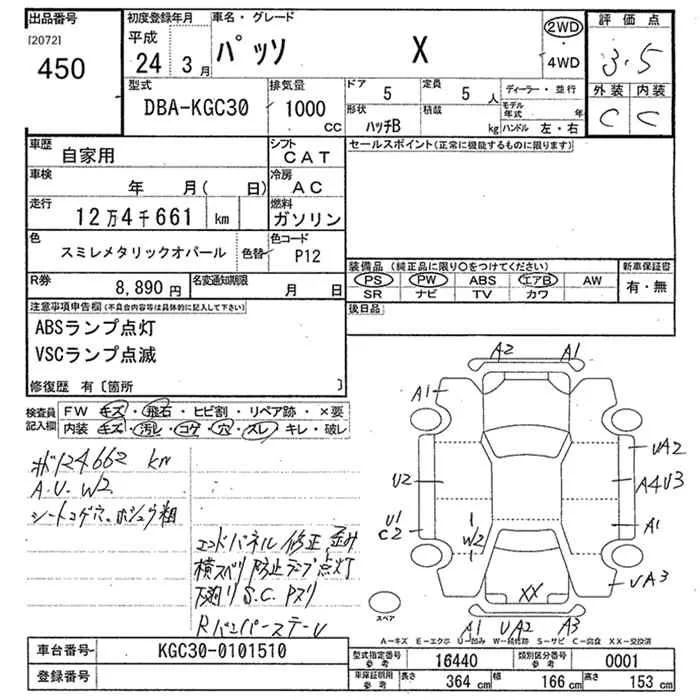 出品番号
[2072]
450
初度登録年月
平成
24 3月
車名・グレード
パッソ X
2WD
・
4WD
評価点
3.5
外装 内装
C C
型式
DBA-KGC30
排気量
1000
CC
ドア
5
定員
5 人
形状
ハッチB
積載
kg
ディーラー・並行
モデル年式 年
ハンドル 左・右
車歴
自家用
シフト
CAT
セールスポイント(正常に機能するものに限ります)
車検
年 月( 日)
冷房
AC
走行
12万4千661 km
燃料
ガソリン
色
スミレメタリックオパール
色替
色コード
P12
装備品 (純正品に限り○をつけてください)
PS PW ABS エアB AW
SR ナビ TV カワ
新車保証書
有・無
R券
8,890円
名変通知期限
月 日
後日品
注意事項申告欄(不具合内容等は具体的に記入して下さい)
ABSランプ点灯
VSCランプ点滅
修復歴 有〔箇所 〕
検査員記入欄
FW キズ・飛石・ヒビ割・リペア跡・×要
内装 キズ・汚レ・コゲ・穴・スレ・キレ・破レ
124662 km
A.U.W2
シートコゲ穴。ホシュウ粗
エンドパネル修正、歪み
横スベリ防止ランプ点灯
下廻りS.C.Pズリ
A2 A1
A1
U2
U1
C2
W2
UA2
A4U3
A1
UA3
XX
A1 UA2 A3
スペア
A-キズ E-エクボ U-凹み W-補修跡 S-サビ C-腐食 XX-交換済
車台番号
KGC30-0101510
登録番号
型式指定番号
参考
16440
類別区分番号
参考
0001
車庫証明用
参考
長さ 364 cm 幅 166 cm 高さ 153 cm